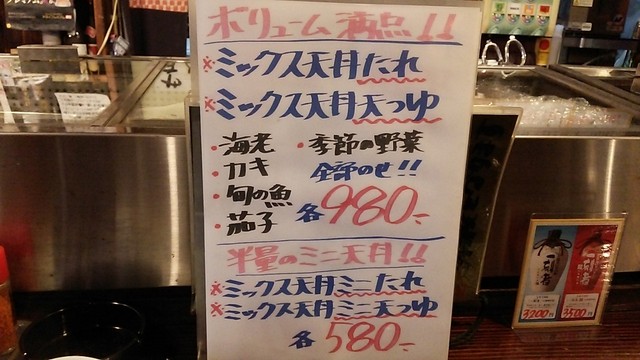 ボリューム満点!!
※ミックス天丼たれ
※ミックス天丼天つゆ
・海老 ・季節の野菜
・カキ 全部のせ!!
・旬の魚
・茄子 各980-
半量のミニ天丼!!
※ミックス天丼ミニたれ
※ミックス天丼ミニ天つゆ
各580-
一刻者
3200
3500